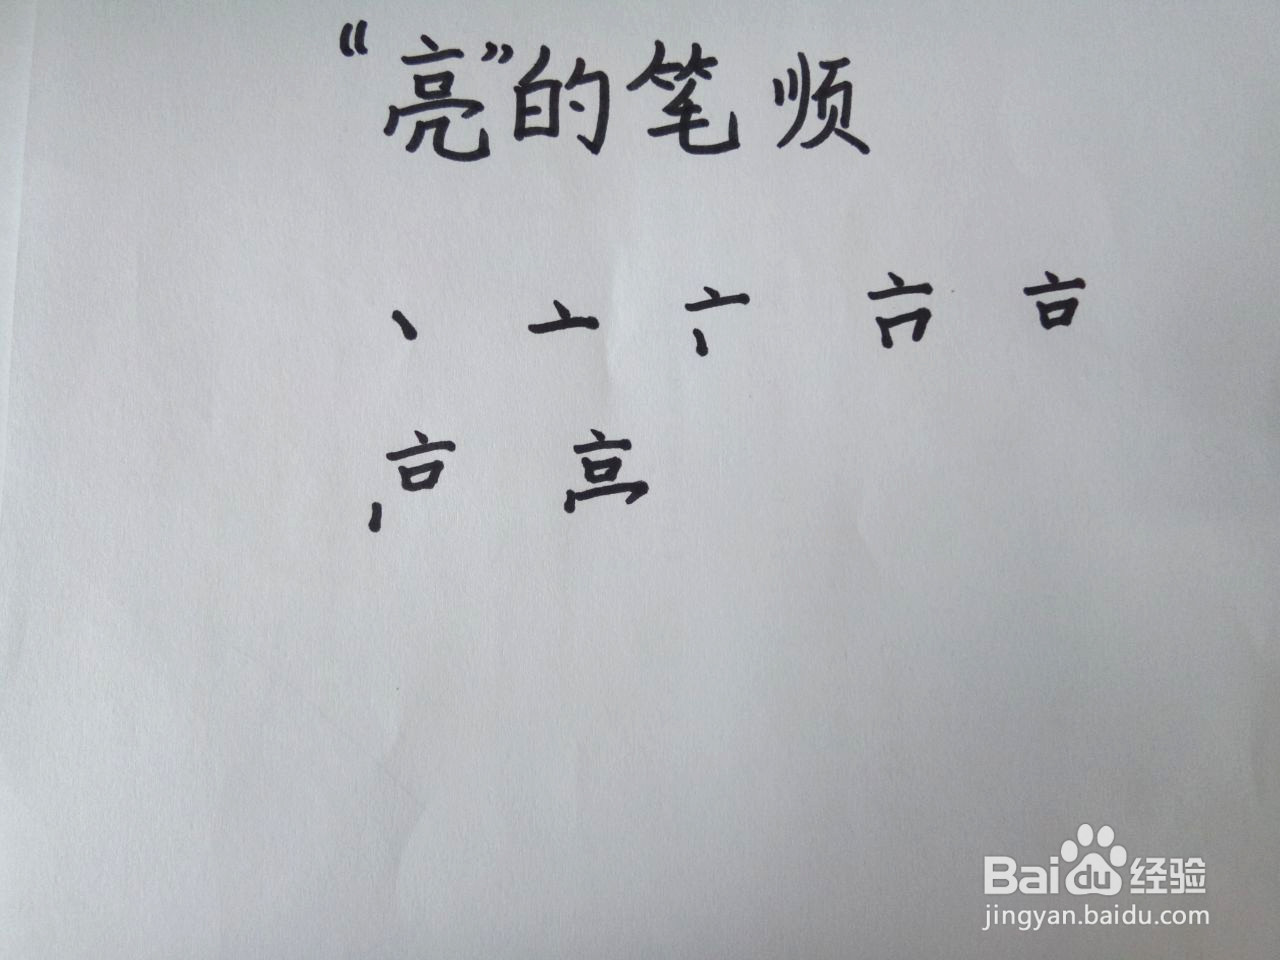 “亮”的笔顺
丶 亠
Baidu经验
jingyan.baidu.com